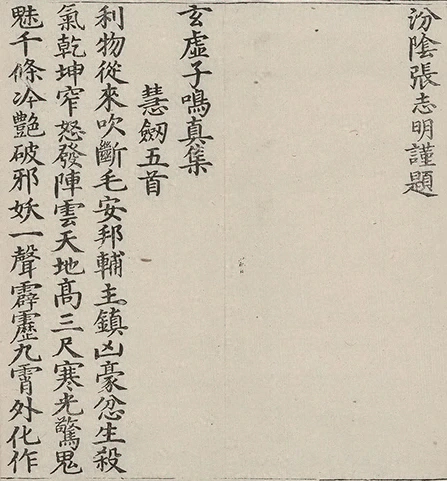 汾陰張志明謹題
玄虛子鳴真集
慧劔五首
利物從來吹斷毛安邦輔主鎮凶豪忿生殺
氣乾坤窄怒發陣雲天地髙三尺寒光驚鬼
魅千條冷艷破邪妖一聲霹靂九霄外化作